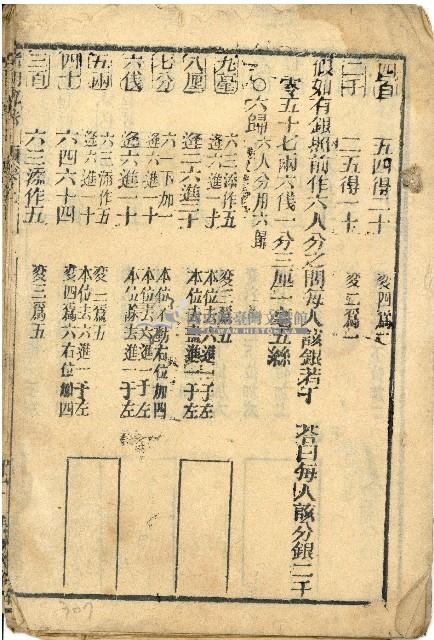 四百　五四得二十　変四為二
二千　二五得一十　変二為一
假如有銀照前作六人分之問每人該銀若干　荅曰每人該分銀二千
零五十七兩六伐一分三厘一毫五絲
〇六歸　六人分用六歸
九毫　六三添作五　変三為五
逢六進一十　本位去六進一于左
八厘　逢二六進二十　本位去進二于左
七分　六一下加　本位不動右位加四
六伐　逢六進一十　本位去進一于左
五兩　六三添作五　変三為五
逢六進一十　本位去六進一于左
四十　六四六十四　変四為六右位加四
三百　六三添作五　変三為五
307